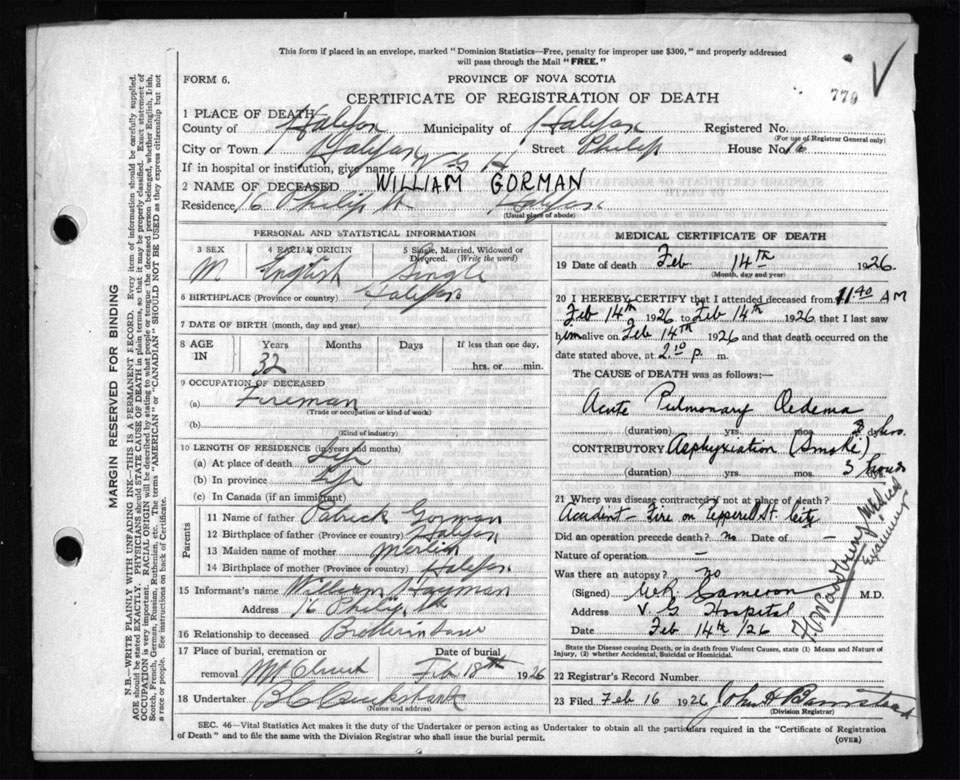 This form if placed in an envelope, marked "Dominion Statistics—Free, penalty for improper use $300," and properly addressed
will pass through the Mail "FREE."
FORM 6.
PROVINCE OF NOVA SCOTIA
779
CERTIFICATE OF REGISTRATION OF DEATH
1 PLACE OF DEATH
County of Halifax Municipality of Halifax Registered No.
(For use of Registrar General only)
City or Town Halifax Street Philip House No. 16
If in hospital or institution, give name V. G. H
2 NAME OF DECEASED WILLIAM GORMAN
Residence 16 Philip St Halifax
(Usual place of abode)
PERSONAL AND STATISTICAL INFORMATION
3 SEX 4 RACIAL ORIGIN 5 Single, Married, Widowed or
Divorced. (Write the word)
M. English Single
6 BIRTHPLACE (Province or country) Halifax
7 DATE OF BIRTH (month, day and year)
8 AGE IN Years Months Days If less than one day,
32 hrs. or min.
9 OCCUPATION OF DECEASED
(a) Fireman
(Trade or occupation or kind of work)
(b)
(Kind of industry)
10 LENGTH OF RESIDENCE (in years and months)
(a) At place of death Life
(b) In province Life
(c) In Canada (if an immigrant)
Parents
11 Name of father Patrick Gorman
12 Birthplace of father (Province or country) Halifax
13 Maiden name of mother
14 Birthplace of mother (Province or country) Halifax
15 Informant's name William
Address 16 Philip St
16 Relationship to deceased Brotherinlaw
17 Place of burial, cremation or Date of burial
removal Mt Olivet Feb 18th 1926
18 Undertaker
MEDICAL CERTIFICATE OF DEATH
19 Date of death Feb 14th 1926
(Month, day and year)
20 I HEREBY CERTIFY that I attended deceased from 11.40 AM
Feb 14th 1926 to Feb 14th 1926 that I last saw
him alive on Feb 14th 1926 and that death occurred on the
date stated above, at 2.10 p. m.
The CAUSE of DEATH was as follows:—
Acute Pulmonary Oedema
(duration) yrs. mos. 3 hrs.
CONTRIBUTORY Asphyxiation (Smoke)
(duration) yrs. mos. 3 hours
21 Where was disease contracted if not at place of death?
Accident — Fire on Pepperell St. City
Did an operation precede death? no Date of —
Nature of operation —
Was there an autopsy? no
(Signed) Cameron M.D.
Address V. G Hospital
Date Feb 14th /26
Medical
Examiner
State the Disease causing Death, or in death from Violent Causes, state (1) Means and Nature of
Injury, (2) whether Accidental, Suicidal or Homicidal.
22 Registrar's Record Number
23 Filed Feb 16 1926 John
(Division Registrar)
SEC. 46—Vital Statistics Act makes it the duty of the Undertaker or person acting as Undertaker to obtain all the particulars required in the "Certificate of Registration
of Death" and to file the same with the Division Registrar who shall issue the burial permit.
(OVER)
MARGIN RESERVED FOR BINDING
N.B.—WRITE PLAINLY WITH UNFADING INK—THIS IS A PERMANENT RECORD. Every item of information should be carefully supplied.
AGE should be stated EXACTLY. PHYSICIANS should STATE CAUSE OF DEATH in plain terms, so that it may be properly classified. Exact statement of
OCCUPATION is very important. RACIAL ORIGIN will be described by stating to what people or tongue the deceased person belonged, whether English, Irish,
Scotch, French, German, Russian, Ruthenian, etc. The terms "AMERICAN" or "CANADIAN" SHOULD NOT BE USED as they express citizenship but not
a race or people. See instructions on back of Certificate.